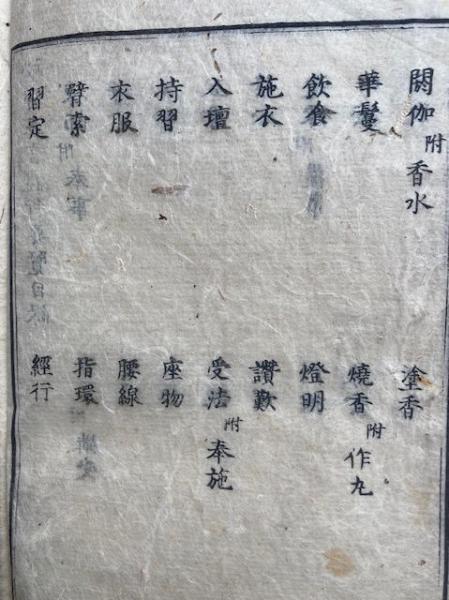 閼伽 附 香水 塗香
華鬘 燒香 附 作丸
飲食 燈明
施衣 讚歎
入壇 受法 附 奉施
持習 座物
衣服 腰線
臂索 指環
習定 經行